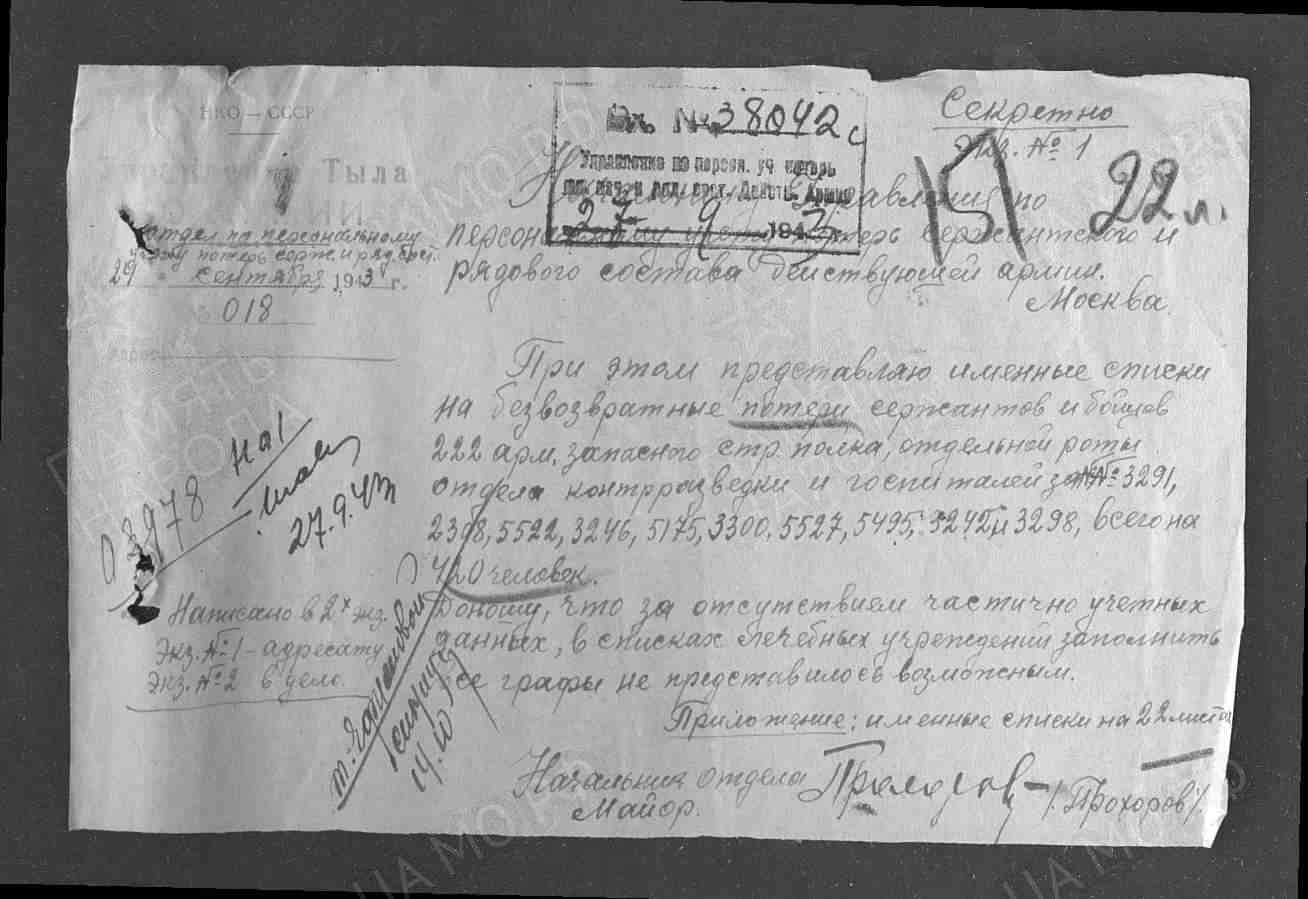 НКО — СССР
Тыла
отдел по персональному
учету потерь серж. и ряд. сост.
29 " сентября 1943 г.
018
Адрес
Вх. № 38042 с
Управление по персон. уч. потерь
мл. нач. и ряд. сост. Действ. Армии
27 9 1943
Секретно
Экз. № 1
22 л.
Начальнику Управления по
персональному учету потерь сержантского и
рядового состава действующей армии.
Москва.
При этом представляю именные списки
на безвозвратные потери сержантов и бойцов
222 арм. запасного стр. полка, отдельной роты
отдела контрразведки и госпиталей за №№ 3291,
2308, 5522, 3246, 5175, 3300, 5527, 5495, 3242 и 3298, всего на
420 человек.
Доношу, что за отсутствием частично учетных
данных, в списках лечебных учреждений заполнить
все графы не представилось возможным.
Приложение: именные списки на 22 листах
Начальник отдела Прохоров - /Прохоров/.
Майор.
03978
27.9.43
Написано в 2х экз.
Экз. № 1 - адресату
Экз. № 2 в дело.
14.10